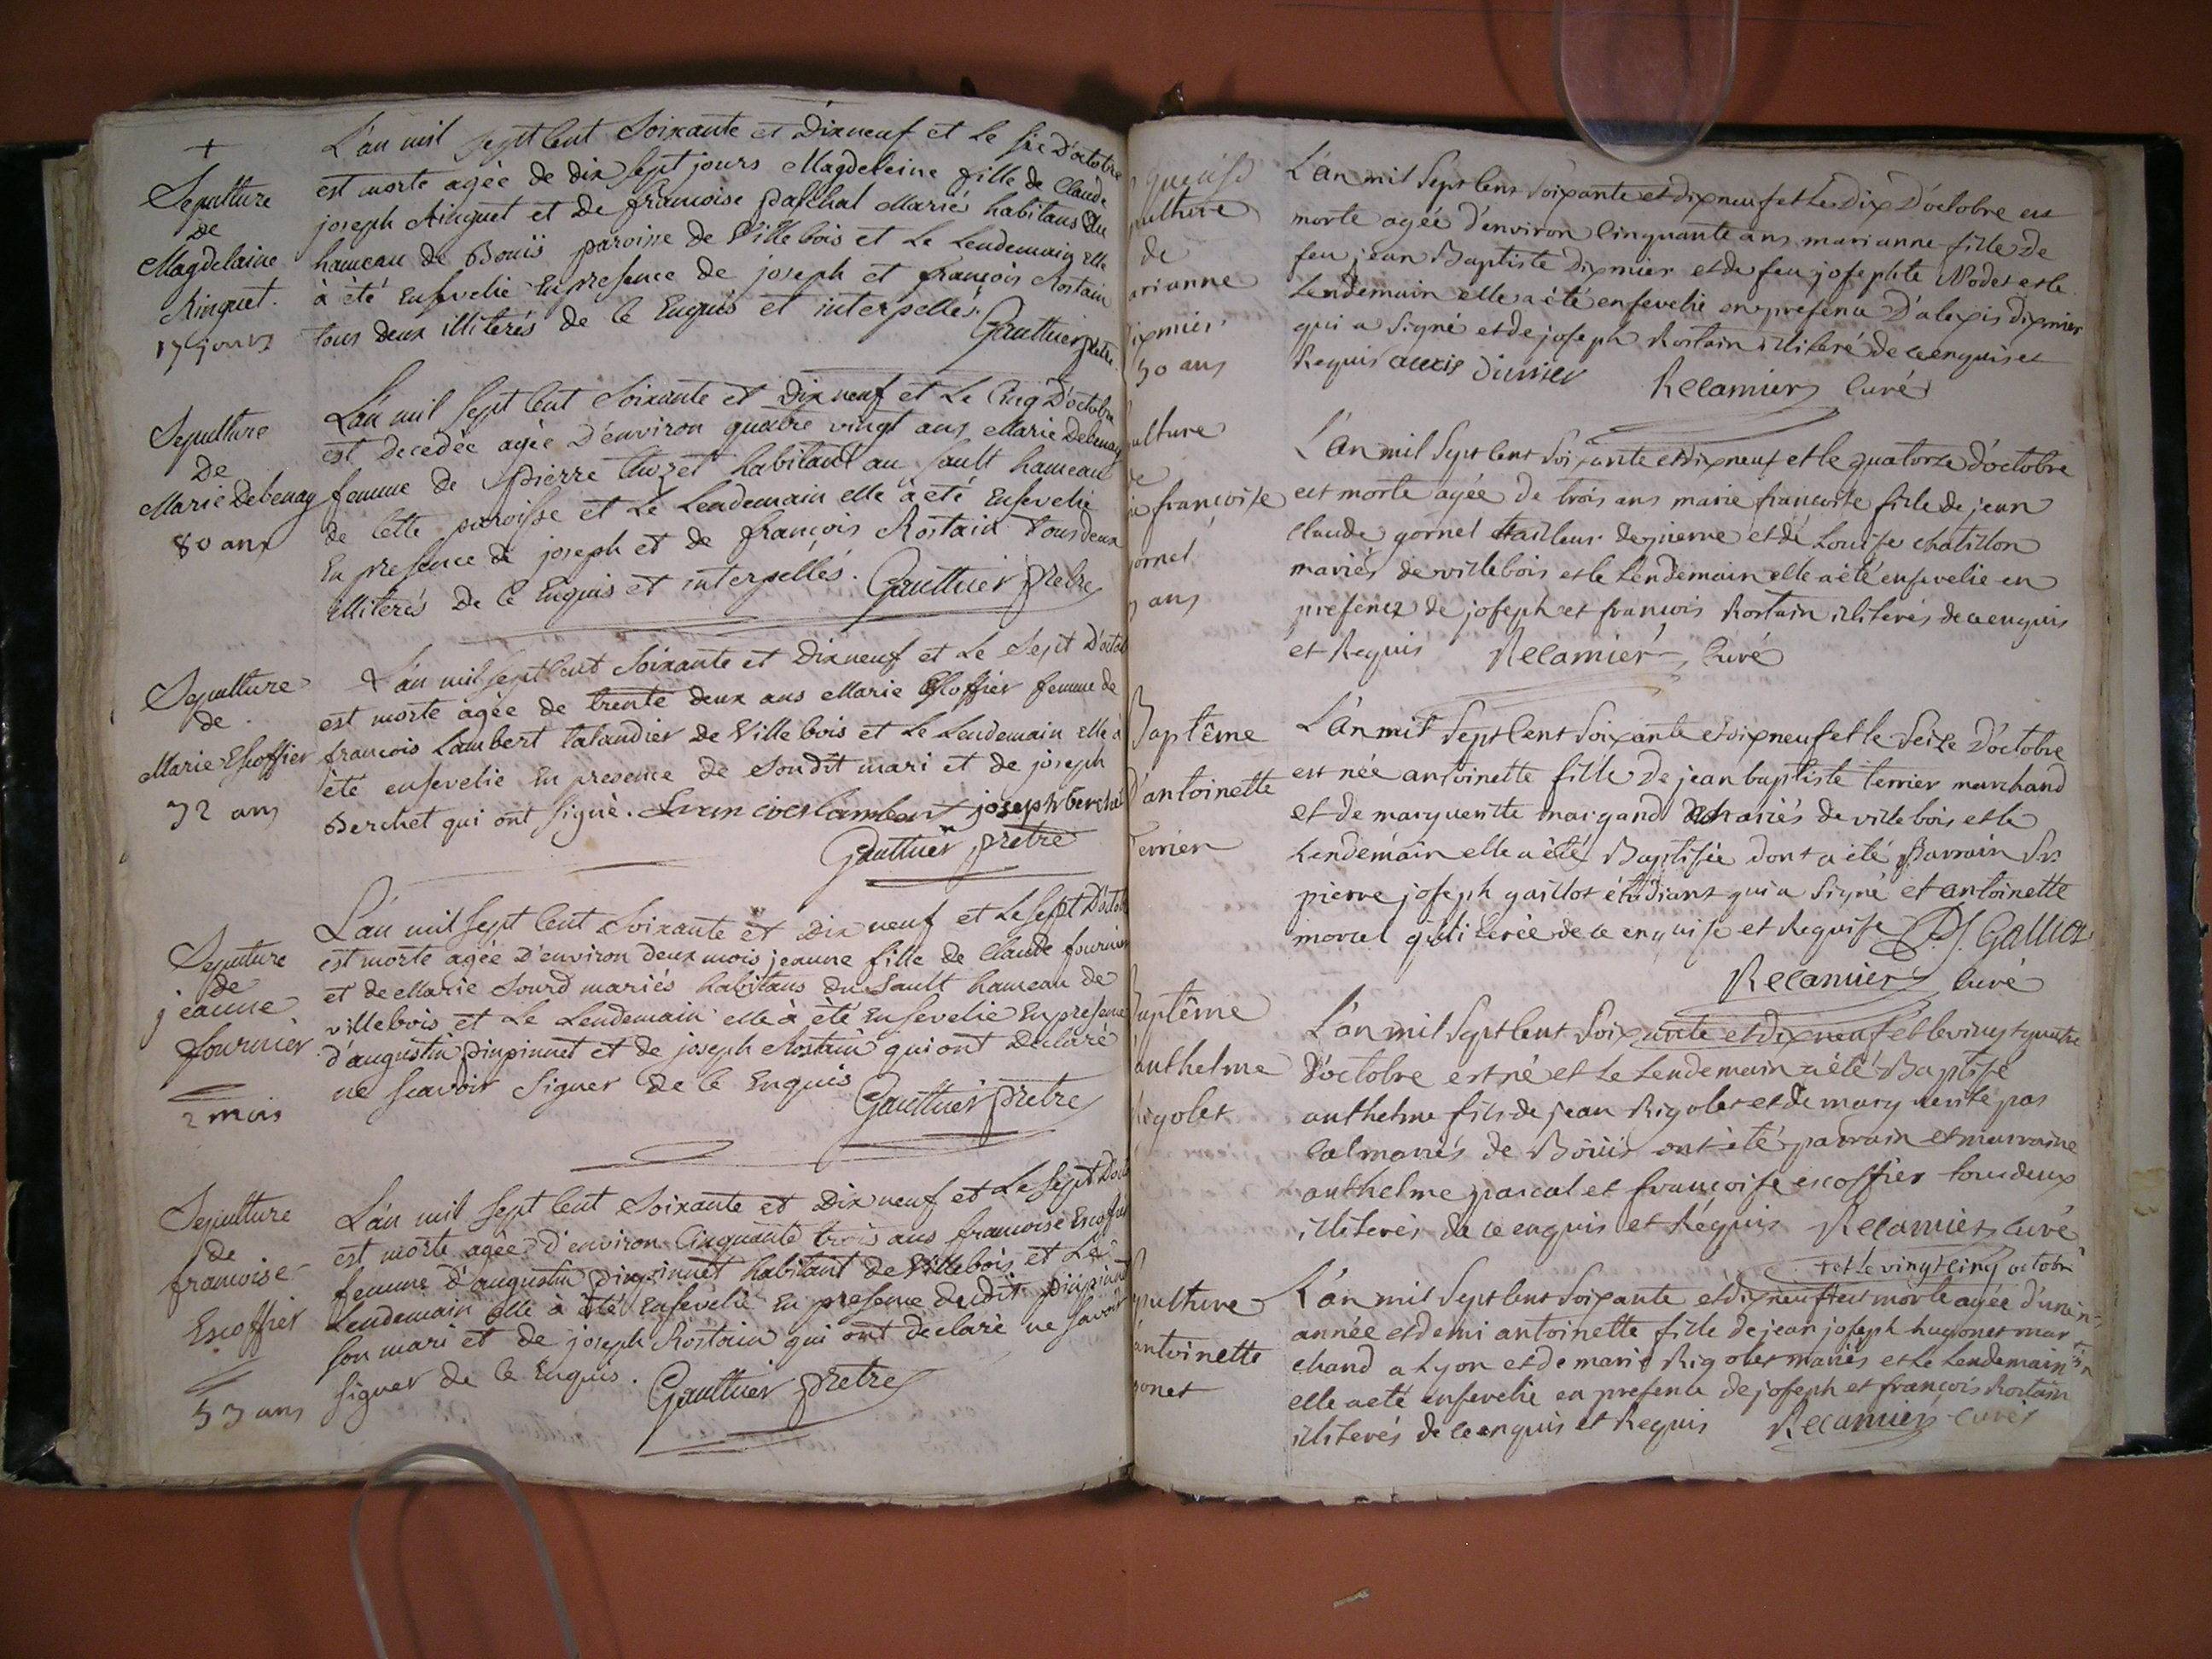 +
Sepulture
de
Magdelaine
Ringuet.
17 jours
L'an mil sept Cent Soixante et Dix neuf et Le six D'octobre
est morte agée de dix sept jours Magdeleine fille de Claude
joseph Ringuet et de francoise paschal Mariés habitans du
hameau de Bouis paroisse de Ville bois et Le Lendemain elle
à èté Ensevelie En presence de joseph et françois Rostain
tous deux illiterés de Ce Enquis et interpellés. Gauthier prêtre.
Sepulture
De
Marie Debenay
80 ans
L'an mil sept Cent Soixante et Dix neuf et Le Cinq D'octobre
est Decedée agée D'environ quatre vingt ans Marie Debenay
femme de Pierre habitant au Sault hameau
de Cette paroisse et Le Lendemain elle à eté Ensevelie
En presence de joseph et de françois Rostain Tous deux
illiterés De Ce Enquis et interpellés. Gauthier prêtre
Sepulture
de
Marie Escoffier
32 ans
L'an mil sept Cent Soixante et Dix neuf et Le Sept D'octob
est morte agée de trente deux ans Marie Escoffier femme de
francois Lambert talandier de Ville bois et Le Lendemain elle à
èté ensevelie En presence de Son dit mari et de joseph
Berchet qui ont signé. francois lambert joseph berchet
Gauthier prêtre
Sepulture
de
jeanne
fournier
2 mois
L'an mil sept Cent Soixante et Dix neuf et Le sept D'octob
est morte agée D'environ deux mois jeanne fille de Claude fournier
et de Marie Sourd mariés habitans du Sault hameau de
villebois et Le Lendemain elle à èté Ensevelie En presence
d'augustin pinpinnet et de joseph Rostain qui ont Declaré
ne scavoir Signer de Ce Enquis Gauthier prêtre
Sepulture
de
francoise
Escoffier
53 ans
L'an mil sept Cent Soixante et Dix neuf et Le sept D'oct
est morte agée d'environ Cinquante trois ans francoise Escoffier
femme d'augustin pinpinnet habitant de Villebois et Le
Lendemain elle à èté Ensevelie En presence dudit pinpinnet
son mari et de joseph Rostain qui ont declaré ne savoir
signer de Ce Enquis. Gauthier prêtre
pulture
de
arianne
ixmier
50 ans
L'an mil Sept Cens Soixante et dix neuf et Le Dix D'octobre est
morte agéé d'environ Cinquante ans marianne fille de
feu jean Baptiste Dixmier et de feu josephte Modet et le
Lendemain elle a èté ensevelie en presence D'alexis dixmier
qui a Signé et de joseph Rostain illiteré de ce enquis et
Requis alexis dimier Recamier Curé
ulture
de
ie françoise
ornet
3 ans
L'an mil Sept Cens Soixante et dix neuf et le quatorze d'octobre
est morte agée de trois ans marie françoise fille de jean
Claude gornet tailleur de pierre et de Louise chatillon
mariés de villebois et le Lendemain elle a èté ensevelie en
presence de joseph et françois Rostain illiterés de ce enquis
et Requis Recamier Curé
Baptême
D'antoinette
Terrier
L'an mil Sept Cens Soixante et dix neuf et le Seize D'octobre
est née antoinette fille de jean baptiste terrier marchand
et de marguerite margand Mariés de villebois et le
Lendemain elle a èté Baptisée dont a èté Parrain Sr
pierre joseph gaillot étudiant qui a Signé et antoinette
morcel illiterée de ce enquise et Requise P. J. Galliot
Recamier Curé
aptême
anthelme
igolet
L'an mil Sept Cens Soixante et dix neuf et le vingt quatre
D'octobre est né et Le Lendemain a èté Baptisé
anthelme fils de jean Rigolet et de marguerite pas
cal mariés de Bouis ont èté parrain et marraine
anthelme pascal et françoise escoffier tous deux
illiterés de ce enquis et Requis Recamier curé
pulture
antoinette
gonet
+ et le vingt cinq octobre
L'an mil Sept Cens Soixante et dix neuf + est morte agée d'une
année et demi antoinette fille de jean joseph hugonet mar
chand a Lyon et de marie Rigolet mariés et Le Lendemain
elle a eté ensevelie en presence de joseph et françois Rostain
illiterés de ce enquis et Requis Recamier curé